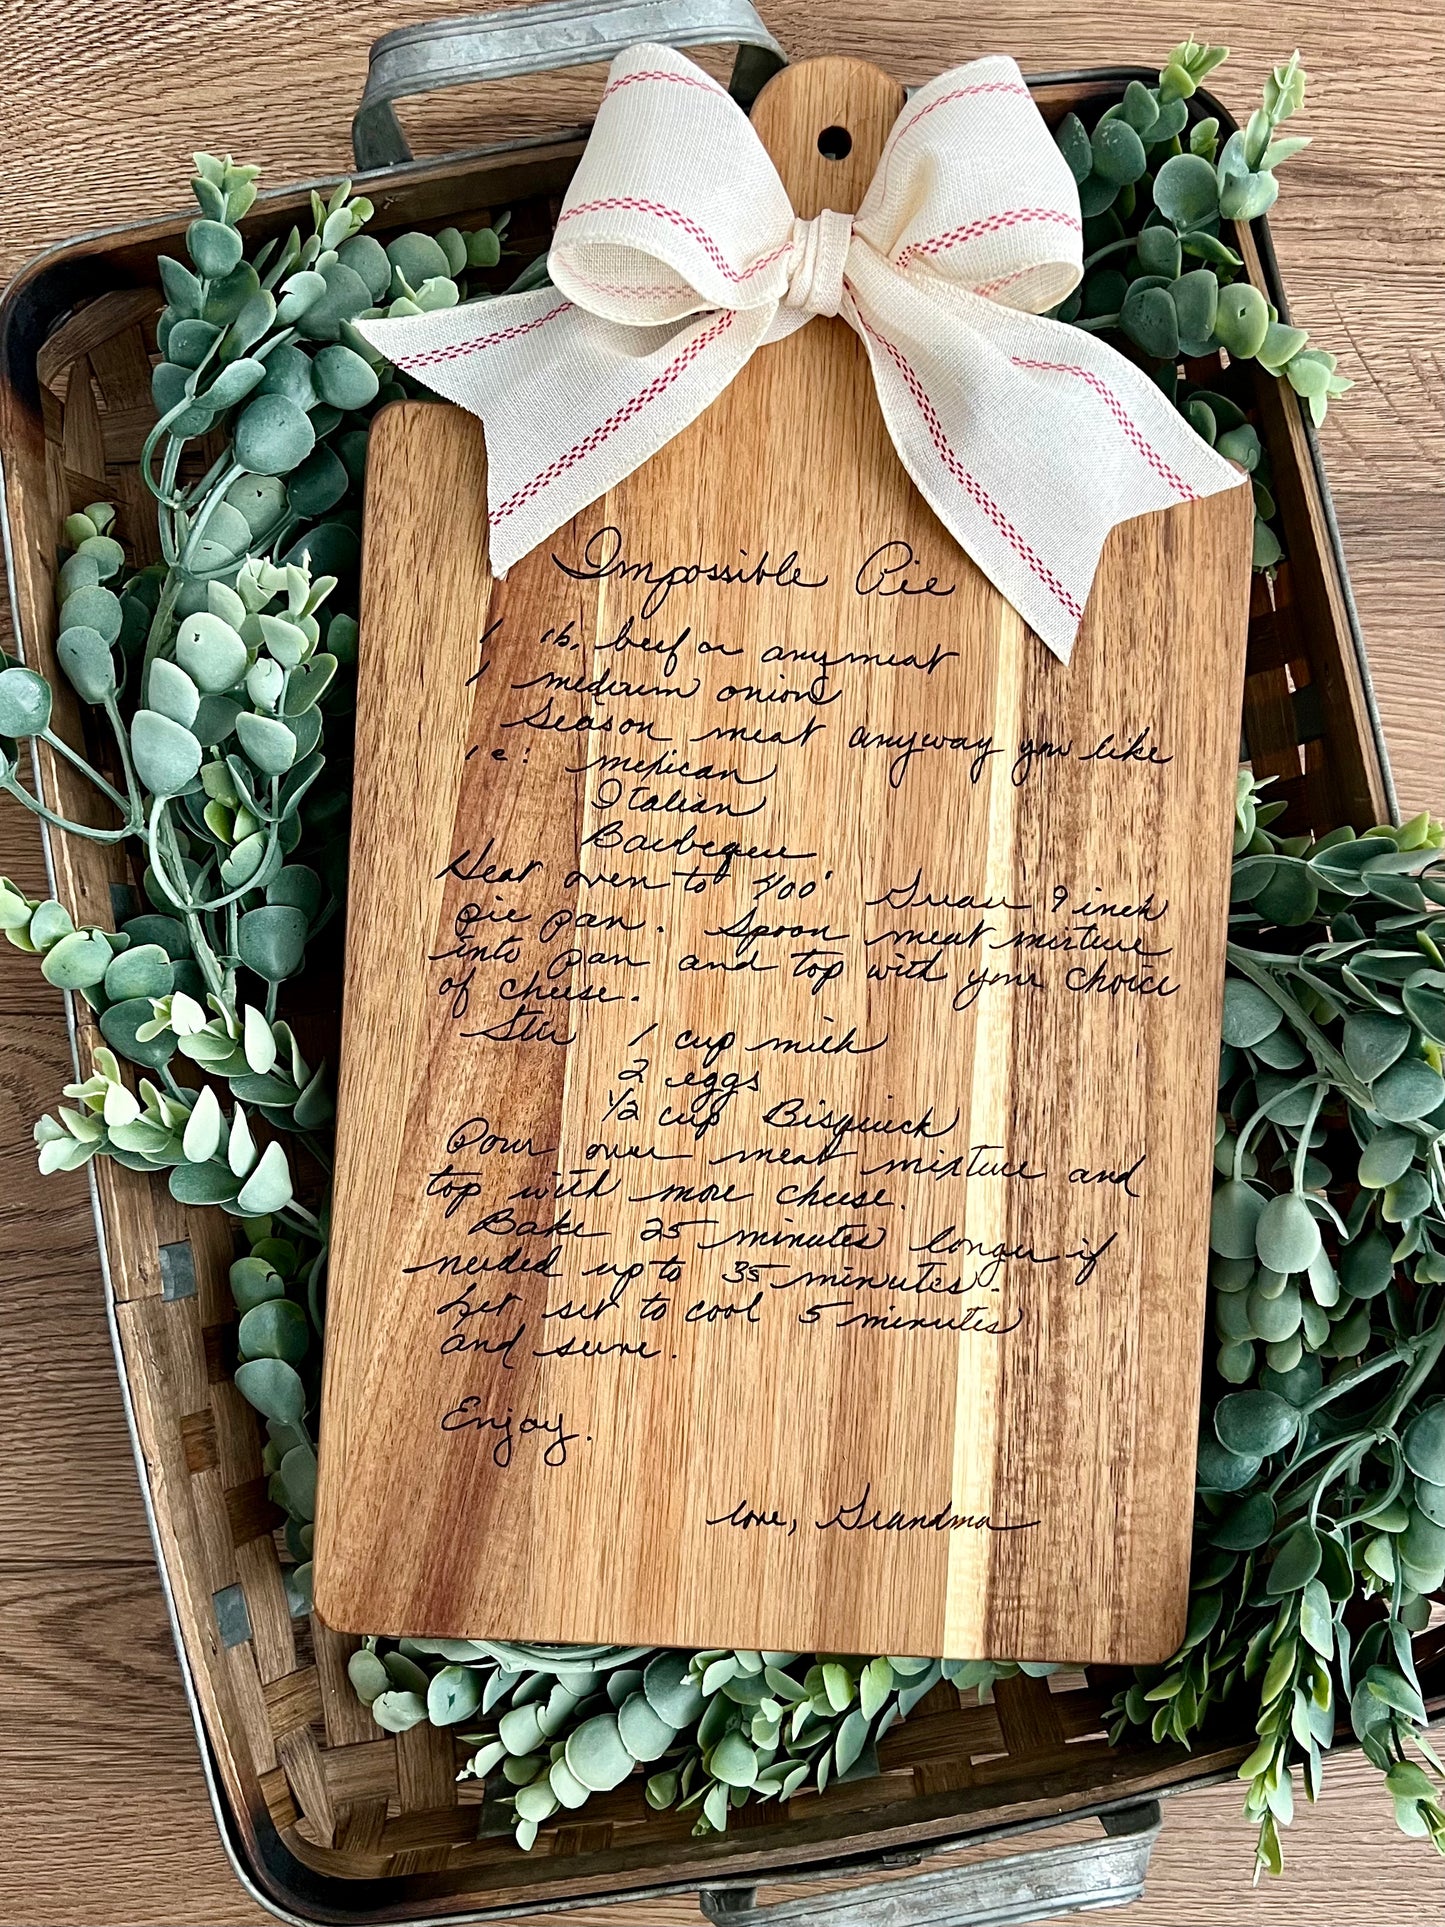 Impossible Pie
1 lb. beef or any meat
1 medium onion
Season meat anyway you like
i e: mexican
Italian
Barbeque
Heat oven to 400° Grease 9 inch
pie pan. Spoon meat mixture
into pan and top with your choice
of cheese.
Stir 1 cup milk
2 eggs
1/2 cup Bisquick
Pour over meat mixture and
top with more cheese.
Bake 25 minutes longer if
needed up to 35 minutes.
Let set to cool 5 minutes
and serve.
Enjoy.
love, Grandma